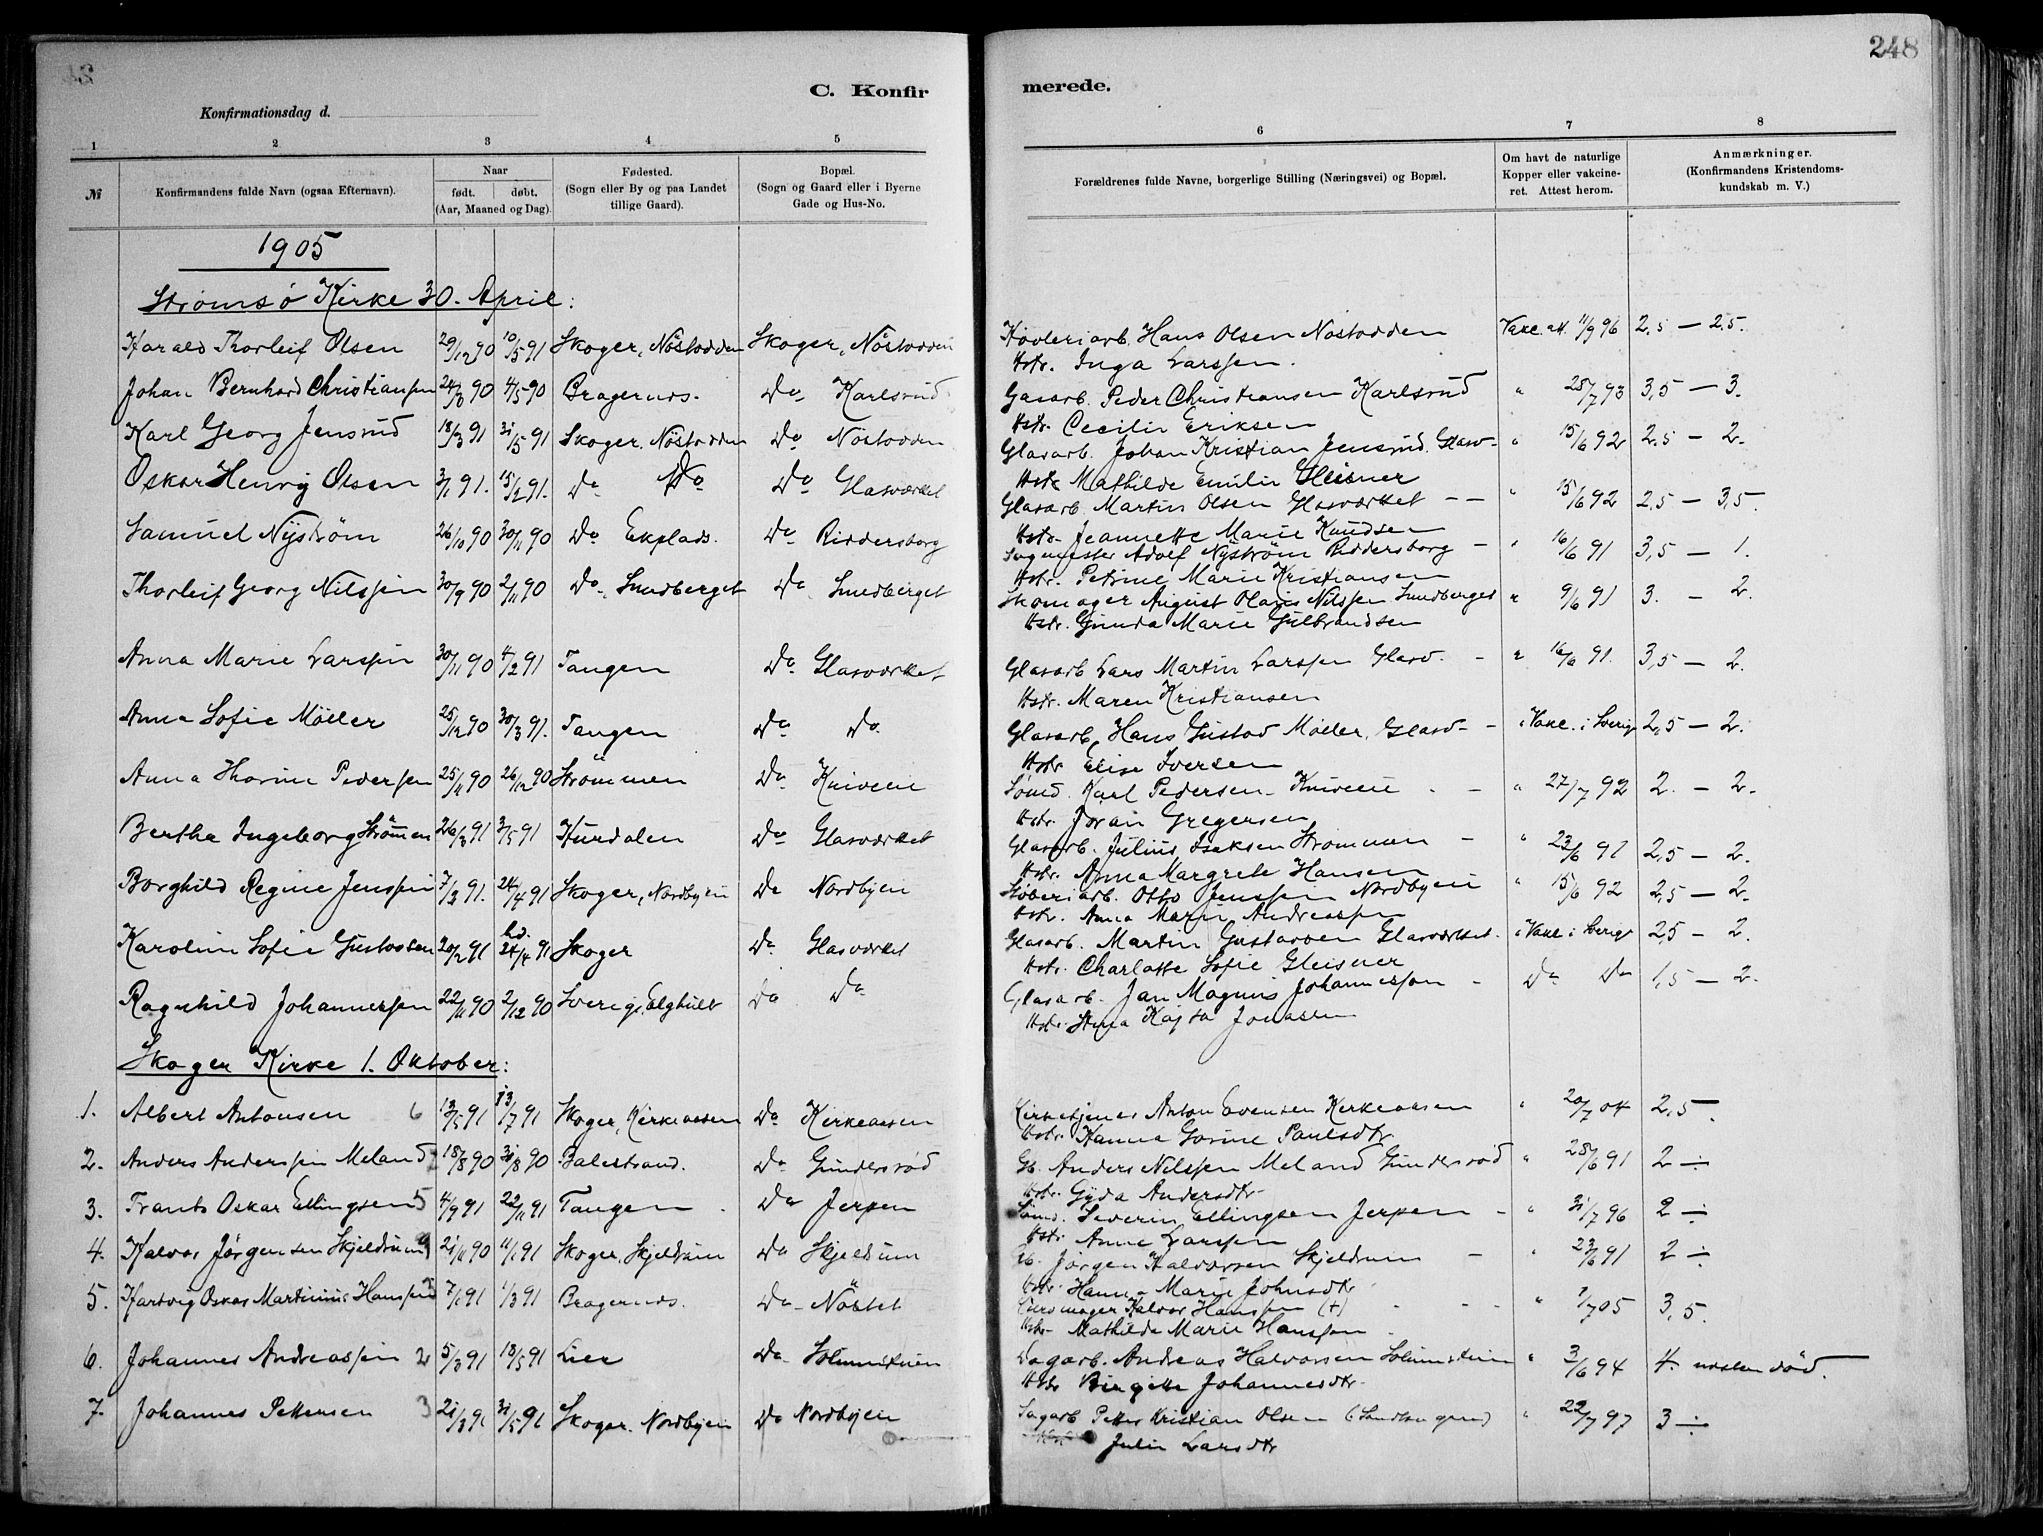 248
C. Konfir merede.
Konfirmationsdag d.
1 2 3 4 5 6 7 8
№ Konfirmandens fulde Navn (ogsaa Efternavn). Naar født. døbt. (Aar, Maaned og Dag).
Fødested. (Sogn eller By og paa Landet tillige Gaard).
Bopæl. (Sogn og Gaard eller i Byerne Gade og Hus-No.
Forældrenes fulde Navne, borgerlige Stilling (Næringsvei) og Bopæl.
Om havt de naturlige Kopper eller vakcineret. Attest herom.
Anmærkninger. (Konfirmandens Kristendomskundskab m. V.)
1905
Strømsø Kirke 30. April:
Harald Thorleif Olsen 29/12 90 10/5 91 Skoger, Nöstodden Skoger, Nöstodden Høvleriarb. Hans Olsen Nöstodden Vakc. att. 11/9 96 2,5 — 2,5.
Hstr. Inga Larssen.
Johan Bernhard Christiansen 90 4/5 90 Bragernes. Do Karlsrud Gaarb. Peder Christiansen Karlsrud " 25/7 93 3,5 — 3.
Hstr. Cecilie Eriksen
Karl Georg Jensrud 18/3 91 31/5 91 Skoger, Nöstodden Do Nöstodden Glasarb. Johan Kristian Jensrud Glasv — " 15/6 92 2,5 — 2.
Hstr. Mathilde Emilie Gleisner
Oskar Henrÿ Olsen 3/1 91. 15/2 91. Do Do Do Glasværket Glasarb. Martin Olsen Glasværket — — " 15/6 92 2,5 — 3,5.
Hstr. Jeannette Marie Knudsen
Samuel Nÿström 26/10 90 30/11 90 Do Ekplads. Do Riddersborg Sagmester Adolf Nÿström Riddersborg — " 16/6 91 3,5 — 1.
Hstr. Petrine Marie Kristiansen
Thorleif Georg Nilssen 30/9 90 2/11 90 Do Smedberget Do Smedberget Skomager August Olaus Nilssen Smedberget " 9/6 91 3. — 2.
Hstr. Gunda Marie Gulbrandsen
Anna Marie Larssen 30/11 90 4/2 91 Tangen Do Glasværket Glasarb Lars Martin Larssen Glasv. — " 16/6 91. 3,5 — 2.
Hstr. Maren Kristiansen
Anna Sofie Möller 25/12 90 30/3 91. Tangen Do Do Glasarb, Hans Gustav Möller, Glasv — " Vakc. i Sverig 2,5 — 2.
Hstr Elise Iversen
Anna Thorine Pedersen 25/11 90 26/12 90 Strömmen Do Kniveien Sömd. Karl Pedersen — Kniveien — " 27/7 92 2. — 2.
Hstr. Joran Gregersen
Bertha Ingeborg Strömmen 26/3 91 3/5 91 Hurdalen Do Glasværket Glasarb. Julius Isaksen Strömmen — " 23/6 91 2,5 — 2.
Hstr. Anna Margrete Hansen
Borghild Regine Jenssen 7/3 91. 24/4 91 Skoger, Nordbyen Do Nordbyen Støberiarb. Otto Jenssen Nordbyen " 15/6 92 2,5 — 2.
Hstr. Anna Marie Andreassen
Karoline Sofie Gustavsen 20/2 91 hd. 24/4 91 Skoger Do Glasværket Glasarb. Martin Gustavsen Glasværket. " Vakc. i Sverige 2,5 — 2.
Hstr. Charlotte Sofie Gleisner
Ragnhild Johannessen 22/11 90 2/12 90 Sverige, Elghult Do Do Glasarb. Jan Magnus Johannesson — Do Do 1,5 — 2.
Hstr. Stina Kajsa Jonasen
Skoger Kirke 1. Oktober:
1. Albert Antonsen 6 13/5 91 13/7 91 Skoger, Kirkeaasen Do Kirkeaasen Kirketjener Anton Evensen Kirkeaasen " 20/7 04 2,5 —
Hstr. Hanna Gorine Paulsdtr
2. Anders Anderssen Meland 18/8 90 31/8 90 Balestrand. Do Gundersrød Gb. Anders Nilssen Meland Gundersrød " 28/6 91 2 —
Hstr. Gyda Andersdtr
3. Frants Oskar Ellingsen 5 4/9 91 22/11 91 Tangen Do Jerpen Sömd. Severin Ellingsen Jerpen — " 31/7 96 2 —
Hstr. Anne Larssen
4. Halvor Jörgensen Skjeldrum 21/11 90 11/1 91 Skoger, Skjeldrum Do Skjeldrum Gb. Jörgen Halvorsen Skjeldrum — " 23/6 91 2 —
Hstr. Hanna Marie Johnsdtr
5. Hartvig Oskar Martinius Hanssen 7/1 91 1/3 91 Bragernes. Do Nöstet Uhrmager Halvor Hanssen (+) — — — " 1/7 05 3,5.
Hstr. Mathilde Marie Hanssen
6. Johannes Andreassen 2 5/3 91 18/5 91 Lier Do Solumstuen Dagarb. Andreas Halvorsen Solumstuen " 3/6 94 4. næsten død.
Hstr Birgitte Johannesdtr
7. Johannes Pettersen 3 21/3 91 31/5 91 Skoger, Nordbyen Do Nordbyen Sagarb Petter Kristian Olsen " 22/7 97 3 —
Julie Larsdtr